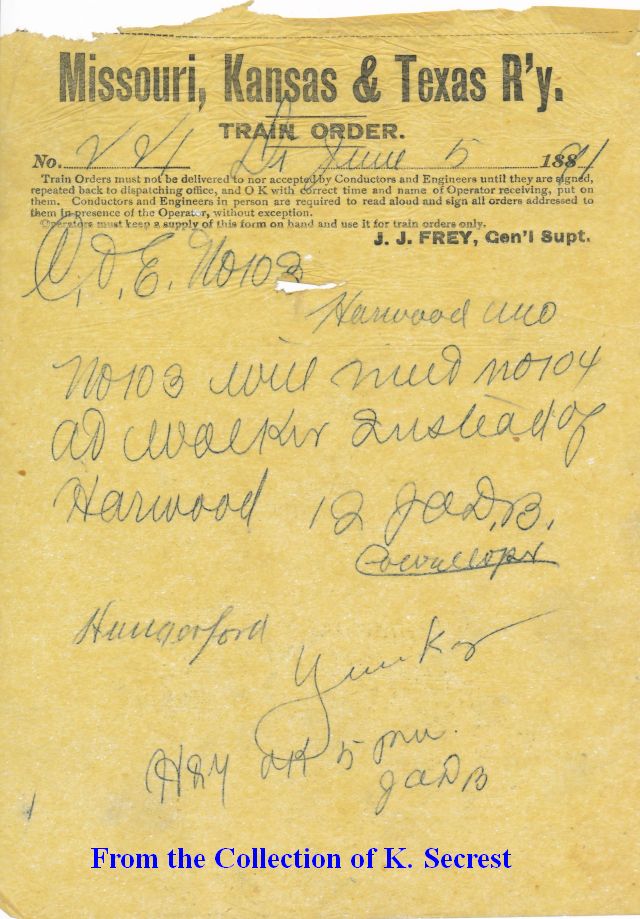 Missouri, Kansas & Texas R'y.
TRAIN ORDER.
No. June 5 188
Train Orders must not be delivered to nor accepted by Conductors and Engineers until they are signed,
repeated back to dispatching office, and O K with correct time and name of Operator receiving, put on
them. Conductors and Engineers in person are required to read aloud and sign all orders addressed to
them in presence of the Operator, without exception.
Operators must keep a supply of this form on hand and use it for train orders only.
J. J. FREY, Gen'l Supt.
C. & E. No 103
Harwood Mo
No 103 will meet no 104
at Walker Instead of
Harwood 12 JADB.
Hungerford
Yunker
H & Y OK 5 pm
JADB
From the Collection of K. Secrest